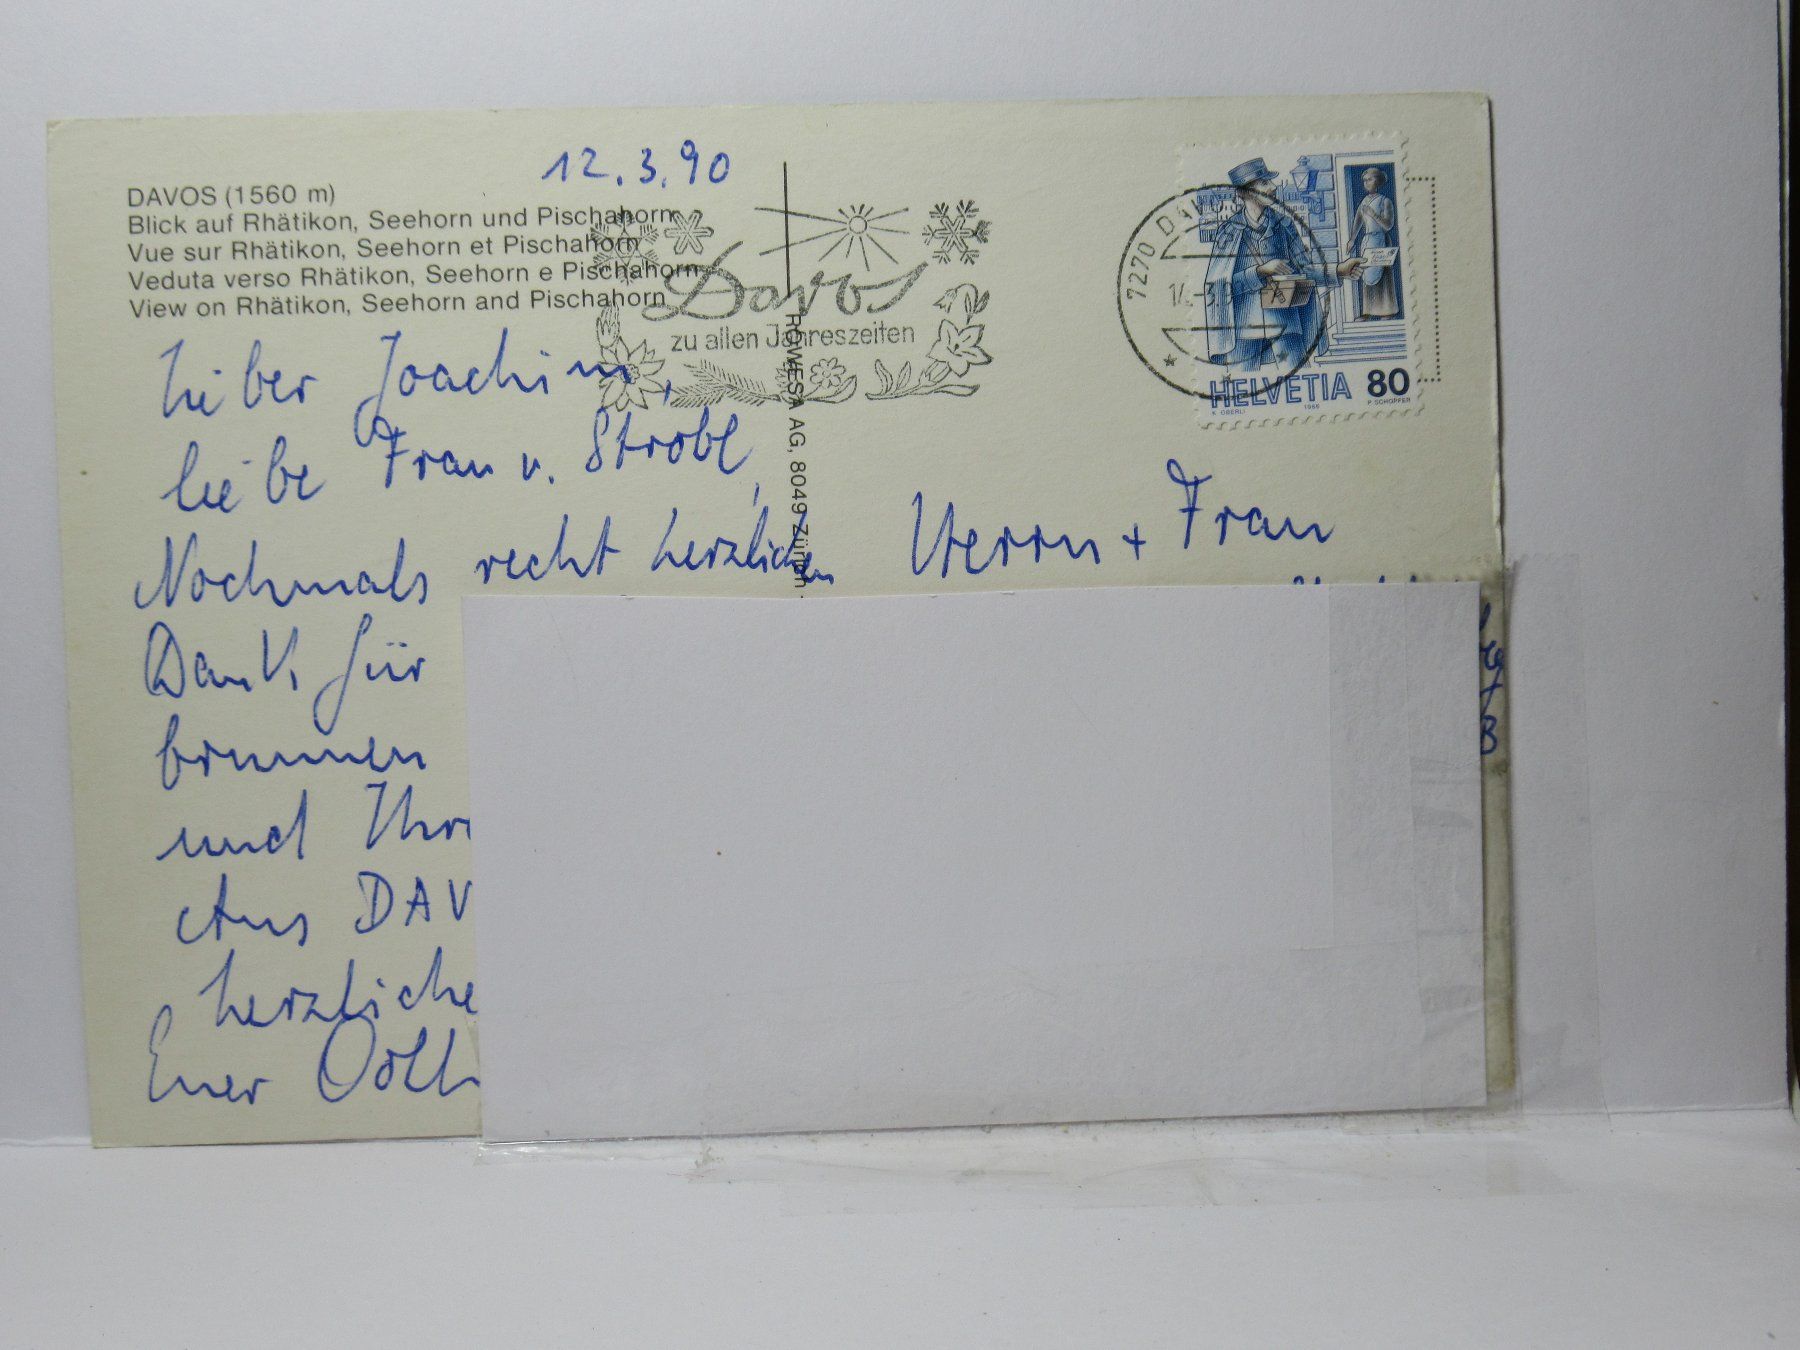 12.3.90
DAVOS (1560 m)
Blick auf Rhätikon, Seehorn und Pischahorn
Vue sur Rhätikon, Seehorn et Pischahorn
Veduta verso Rhätikon, Seehorn e Pischahorn
View on Rhätikon, Seehorn and Pischahorn
Davos
zu allen Jahreszeiten
7270 DAVOS
HELVETIA 80
K. OBERLI 1986 P. SCHOPFER
ROWESA AG, 8049 Zürich
Lieber Joachim,
liebe Frau v. Strobl,
Nochmals recht herzlichen
Dank für
brunnen
und
Aus DAV
herzliche
Euer
Herrn + Frau